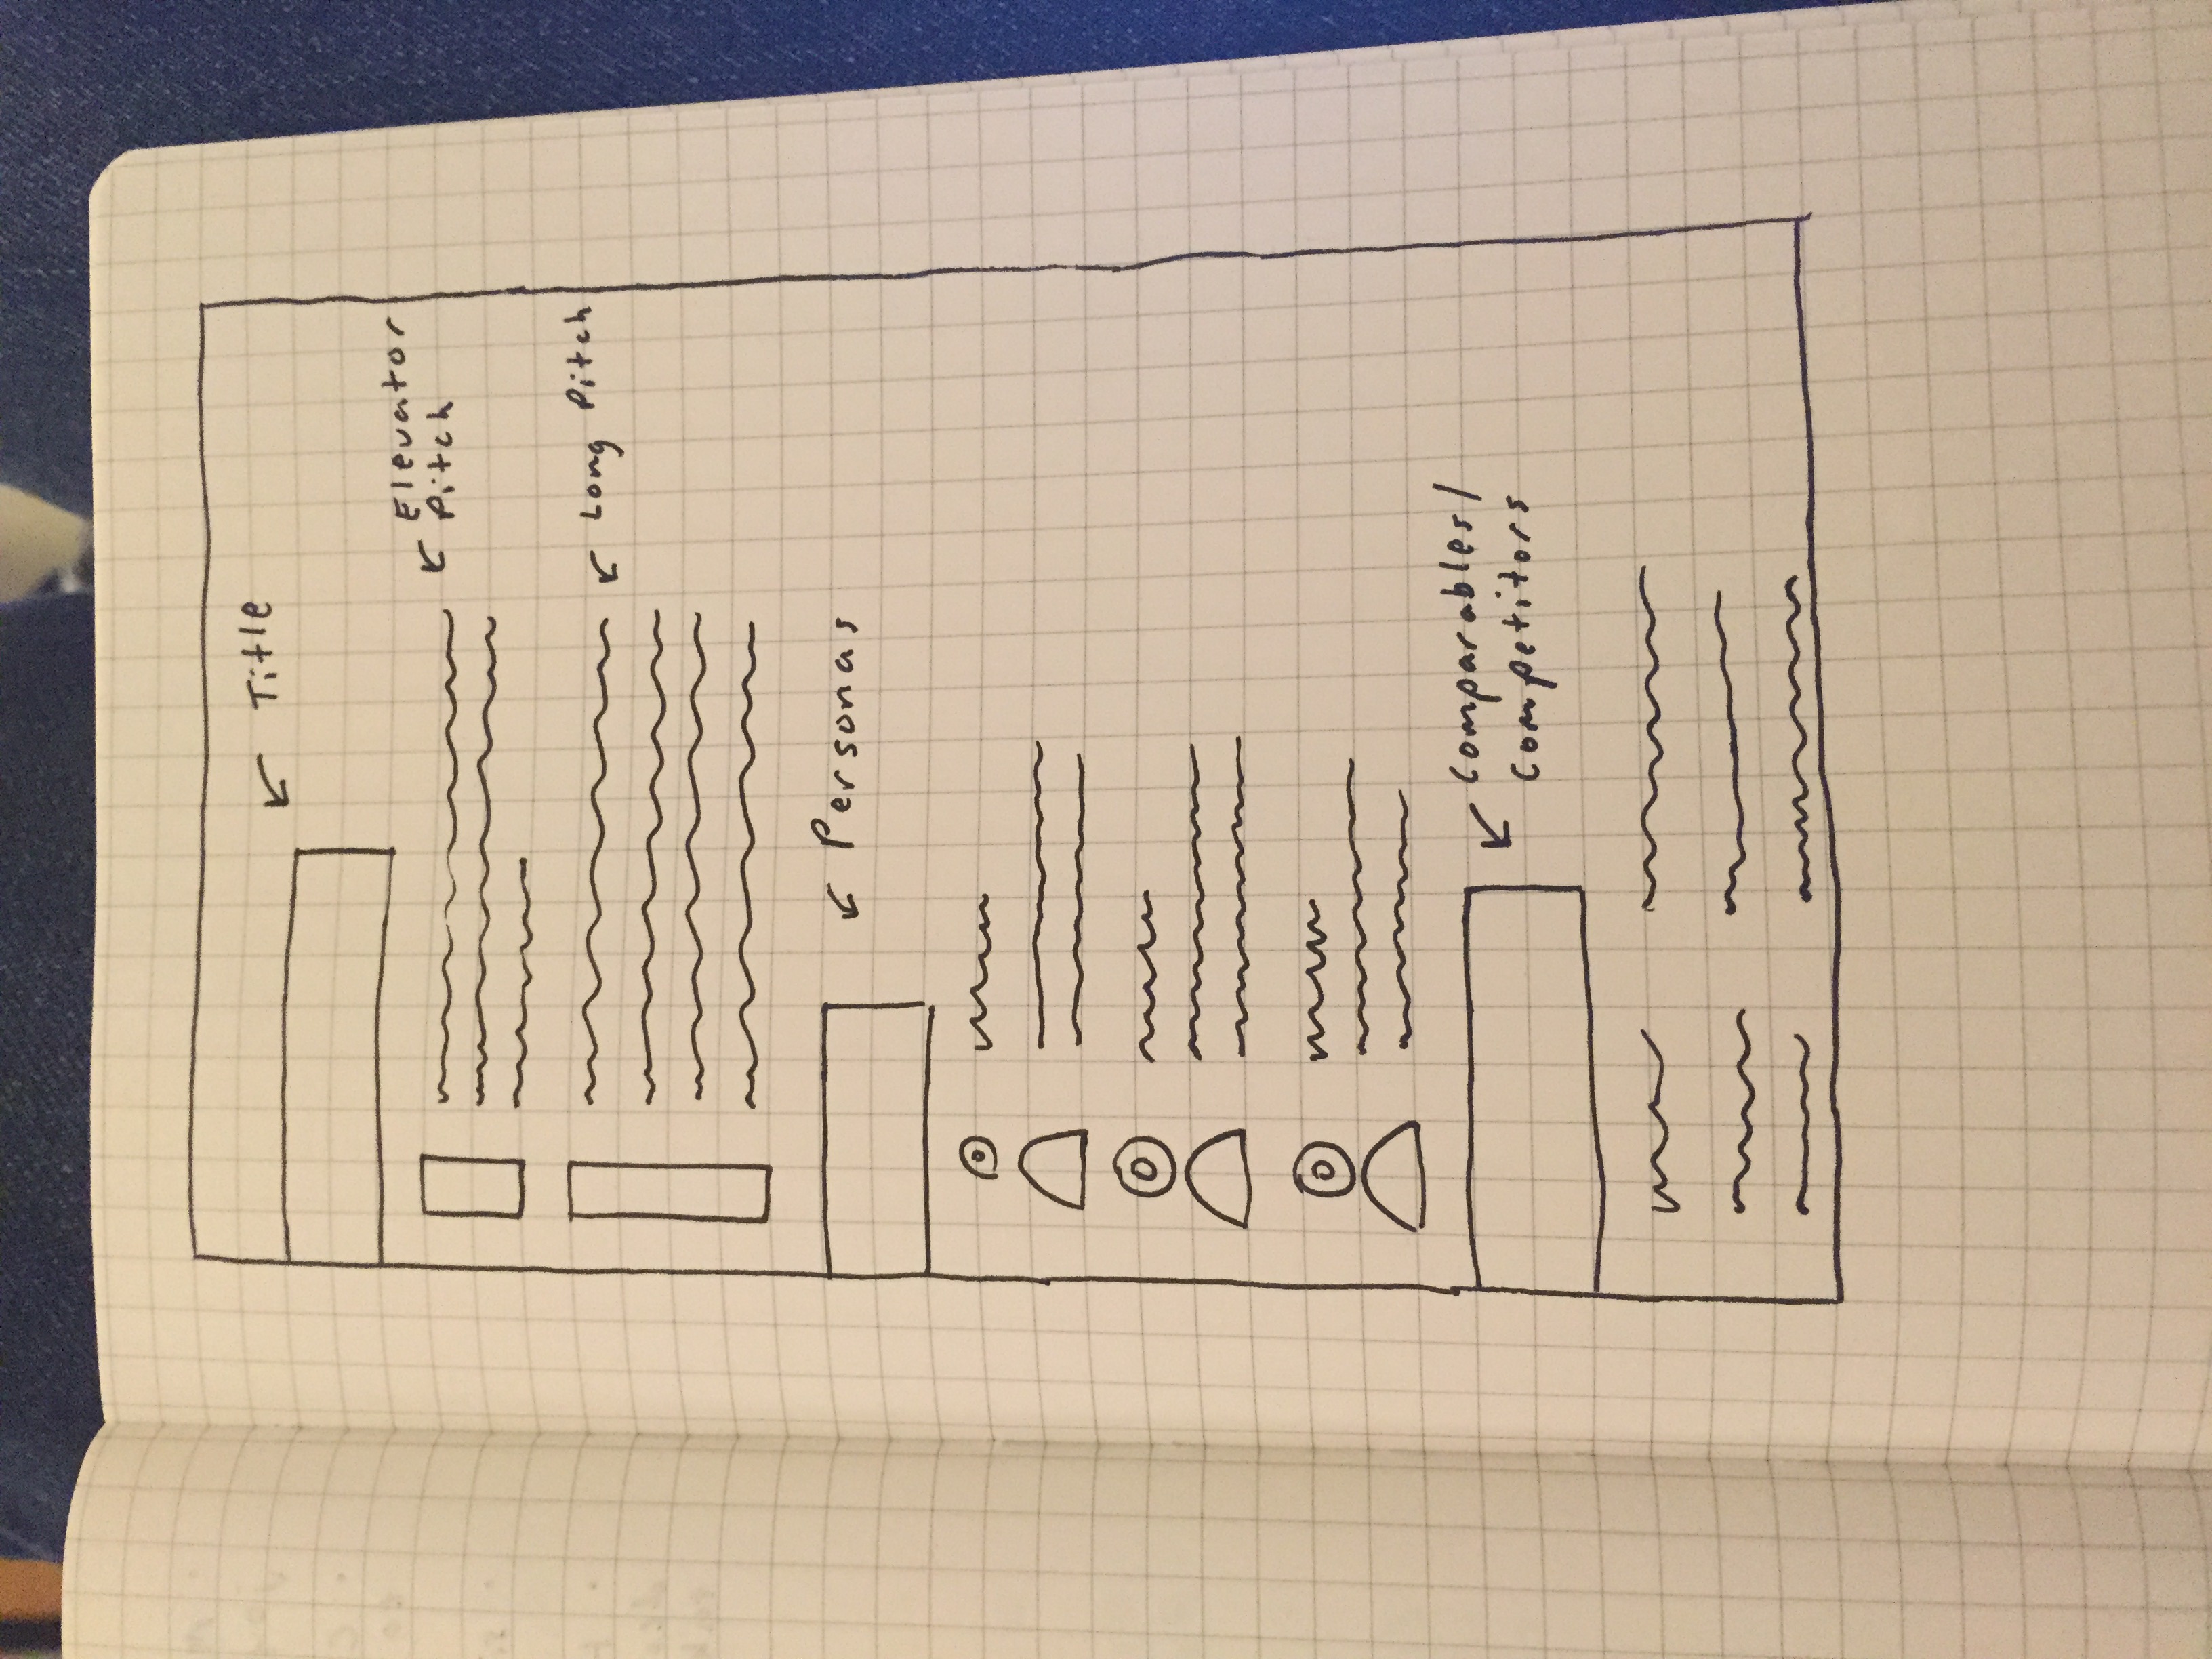 Title
Elevator
Pitch
Long Pitch
Personas
Comparables/
Competitors